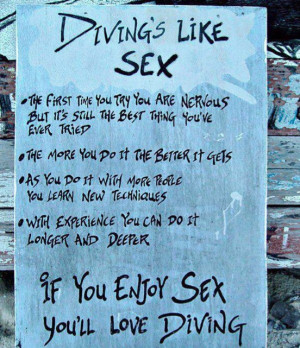 DIVING'S LIKE
SEX
• THE FIRST TIME YOU TRY YOU ARE NERVOUS
BUT IT'S STILL THE BEST THING YOU'VE
EVER TRIED
• THE MORE YOU DO IT THE BETTER IT GETS
• AS YOU DO IT WITH MORE PEOPLE
YOU LEARN NEW TECHNIQUES
• WITH EXPERIENCE YOU CAN DO IT
LONGER AND DEEPER
IF YOU ENJOY SEX
YOU'LL LOVE DIVING